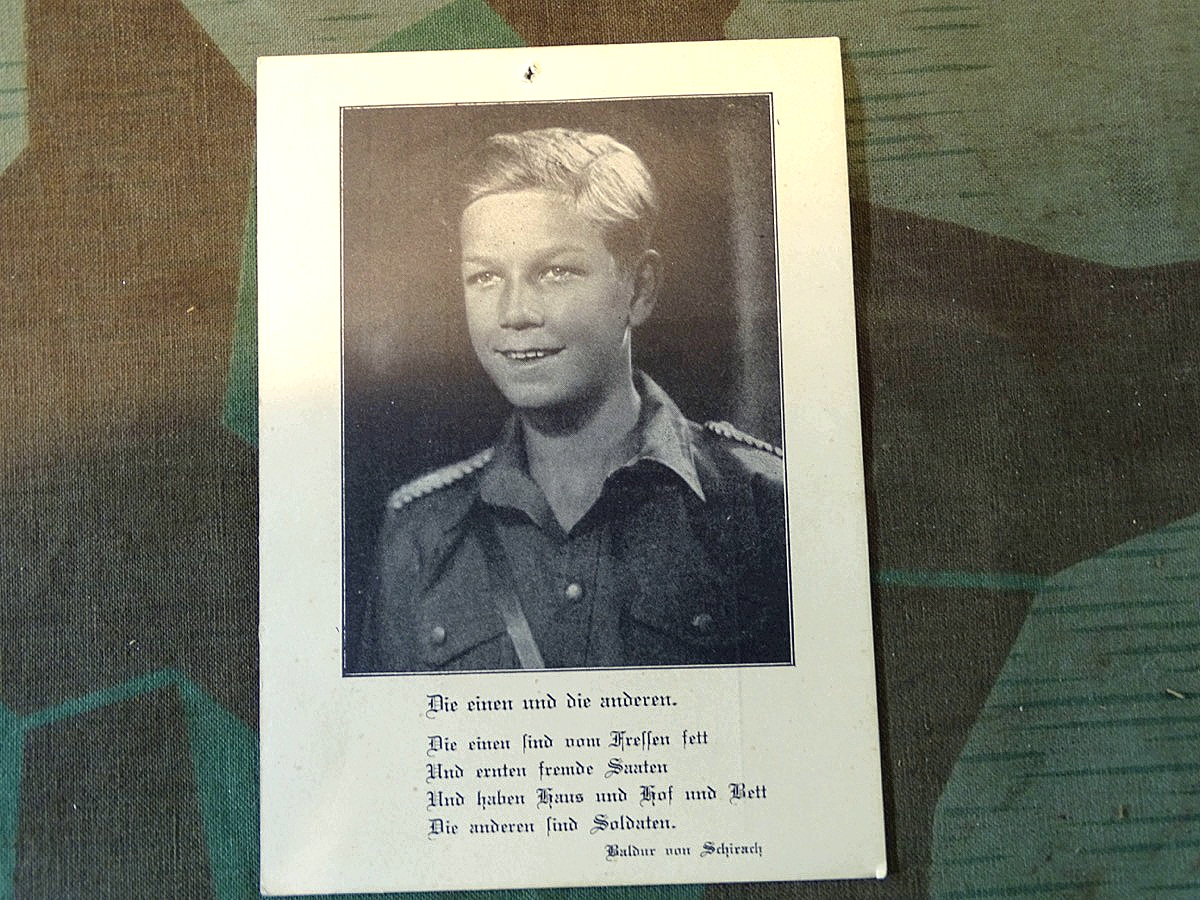 Die einen und die anderen.
Die einen sind vom Fressen fett
Und ernten fremde Saaten
Und haben Haus und Hof und Bett
Die anderen sind Soldaten.
Baldur von Schirach